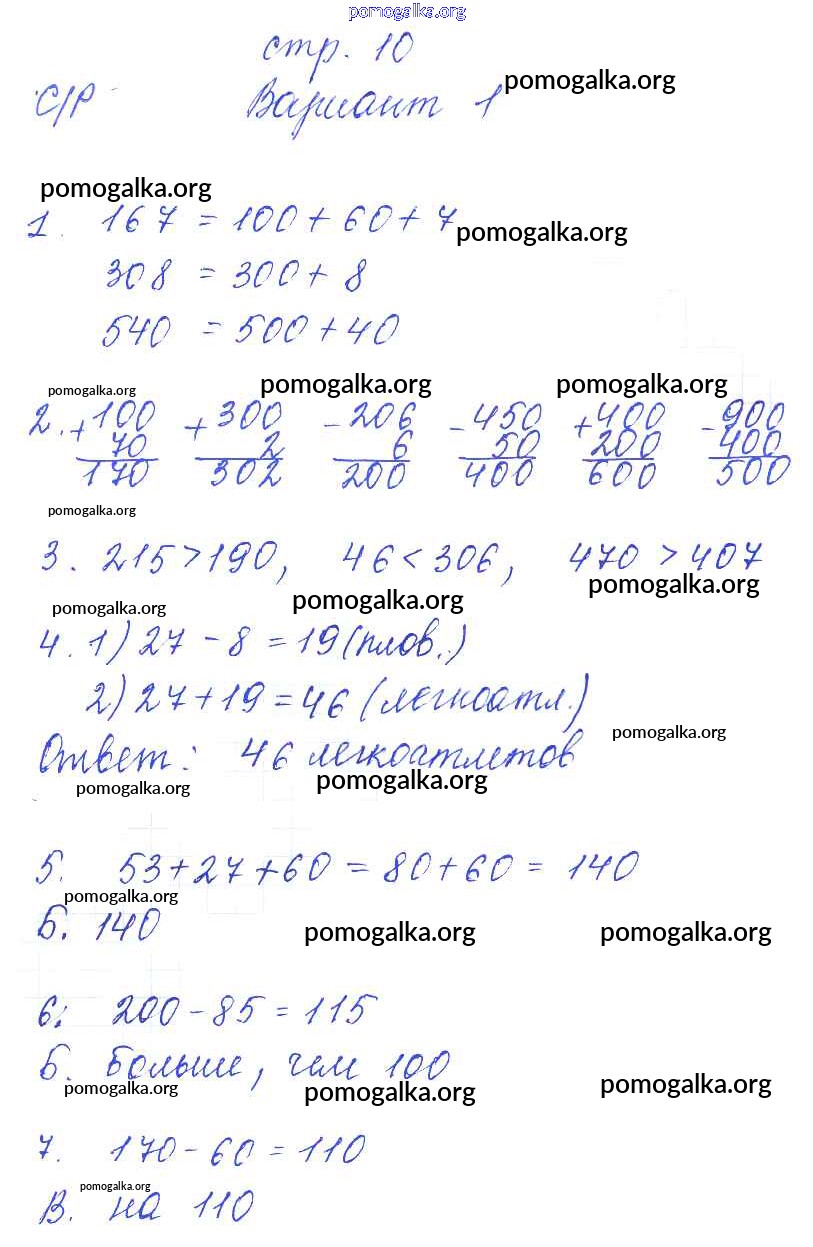 pomogalka.org
стр. 10
С/Р Вариант 1 pomogalka.org
pomogalka.org
1. 167 = 100 + 60 + 7
pomogalka.org
308 = 300 + 8
540 = 500 + 40
pomogalka.org pomogalka.org pomogalka.org
2. +100 +300 -206 -450 +400 -900
70 2 6 50 200 400
170 302 200 400 600 500
pomogalka.org
3. 215 > 190, 46 < 306, 470 > 407
pomogalka.org pomogalka.org pomogalka.org
4. 1) 27 - 8 = 19 (плов.)
2) 27 + 19 = 46 (легкоатл.)
pomogalka.org
Ответ: 46 легкоатлетов
pomogalka.org pomogalka.org
5. 53 + 27 + 60 = 80 + 60 = 140
pomogalka.org
Б. 140
pomogalka.org pomogalka.org
6. 200 - 85 = 115
Б. Больше, чем 100
pomogalka.org pomogalka.org pomogalka.org
7. 170 - 60 = 110
pomogalka.org
В. на 110